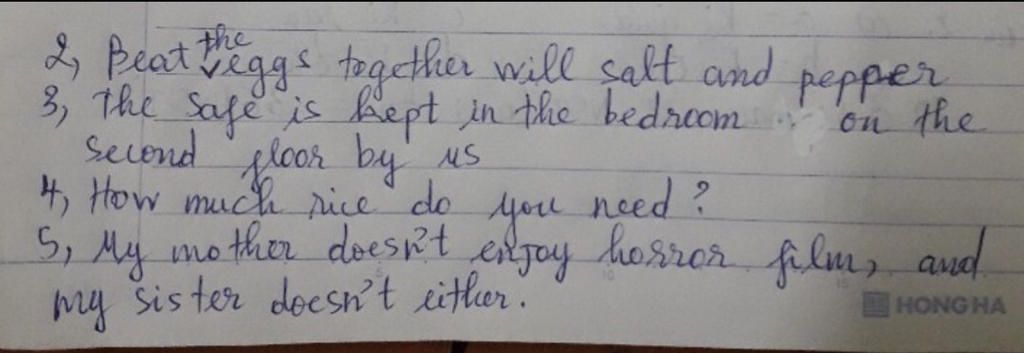 2, Beat the eggs together will salt and pepper
3, The safe is kept in the bedroom on the
second floor by us
4, How much rice do you need?
5, My mother doesn't enjoy horror film, and
my sister doesn't either.
HONG HA